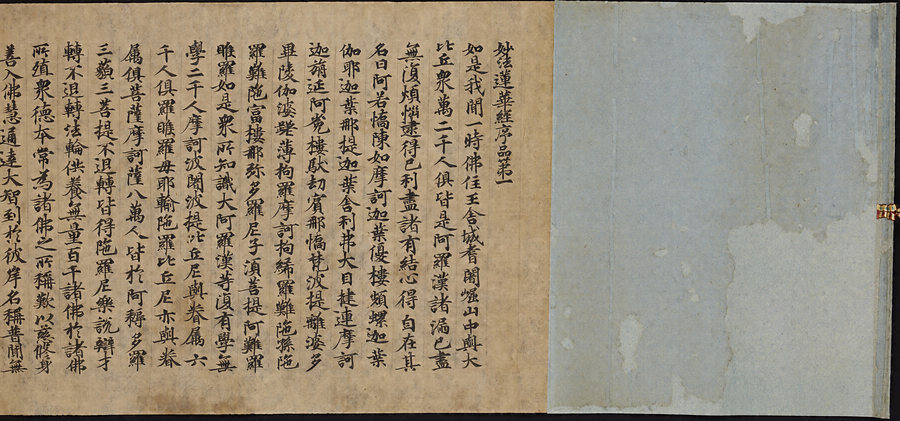 妙法蓮華經序品第一
如是我聞一時佛住王舍城耆闍崛山中與大
比丘衆萬二千人俱皆是阿羅漢諸漏已盡
無復煩惱逮得己利盡諸有結心得自在其
名曰阿若憍陳如摩訶迦葉優樓頻螺迦葉
伽耶迦葉那提迦葉舍利弗大目揵連摩訶
迦旃延阿㝹樓馱劫賓那憍梵波提離婆多
畢陵伽婆蹉薄拘羅摩訶拘絺羅難陁孫陁
羅難陁富樓那弥多羅尼子湏菩提阿難羅
睺羅如是衆所知識大阿羅漢等復有學無
學二千人摩訶波闍波提比丘尼與眷屬六
千人俱羅睺羅母耶輸陁羅比丘尼亦與眷
屬俱菩薩摩訶薩八萬人皆於阿耨多羅
三藐三菩提不退轉皆得陁羅尼樂說辯才
轉不退轉法輪供養無量百千諸佛於諸佛
所殖衆德本常為諸佛之所稱歎以慈修身
善入佛慧通達大智到於彼岸名稱普聞無